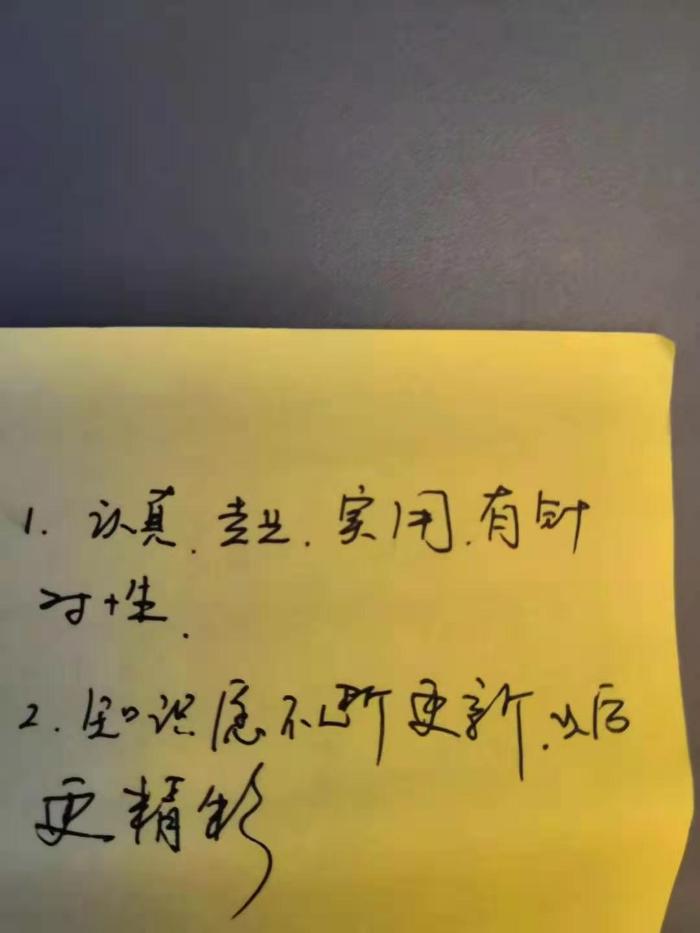 1. 认真.专业.实用.有针
对性.
2. 知识应不断更新.以后
更精彩